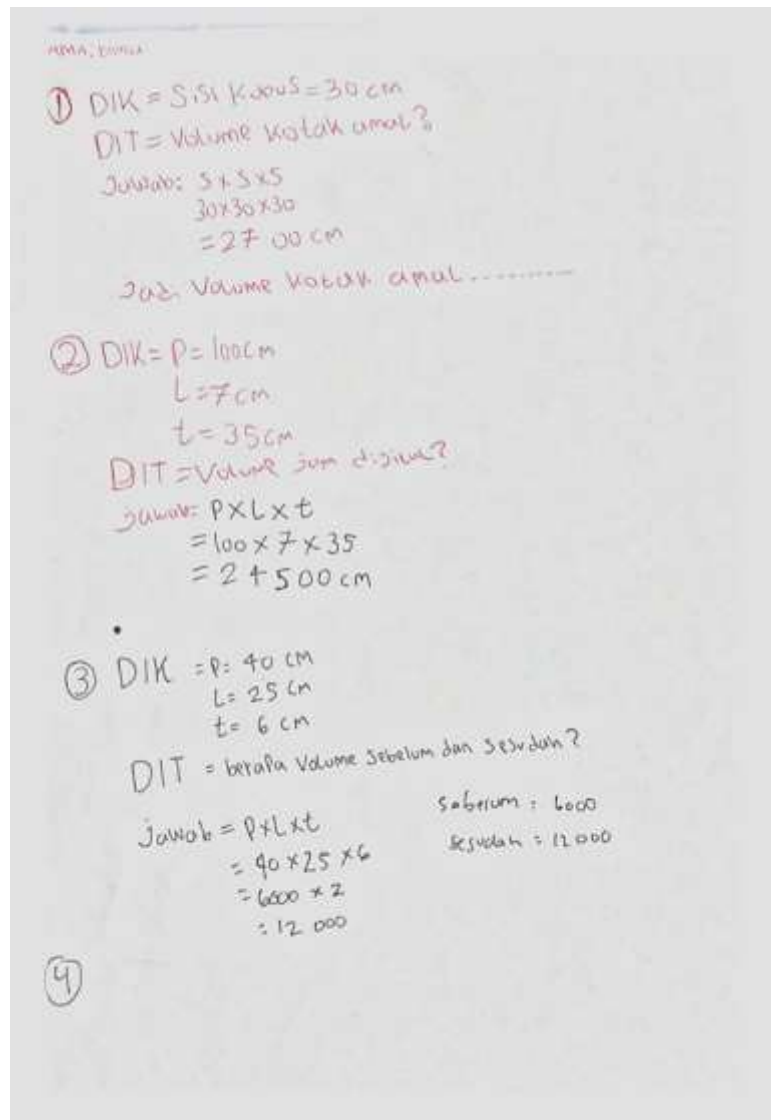 ① DIK = Sisi kubus = 30 cm
DIT = Volume kotak amal?
Jawab: S x S x S
30x30x30
= 27 00 cm
Jadi Volume kotak amal ..........
② DIK = P = 100 cm
L = 7 cm
t = 35 cm
DIT = Volume jam digital?
Jawab: P X L x t
= 100 x 7 x 35
= 24500 cm
③ DIK = P: 40 cm
L: 25 cm
t= 6 cm
DIT = berapa Volume Sebelum dan Sesudah?
Jawab = P x L x t
= 40 x 25 x 6
= 6000 x 2
= 12 000
Sebelum : 6000
Sesudah : 12 000
④